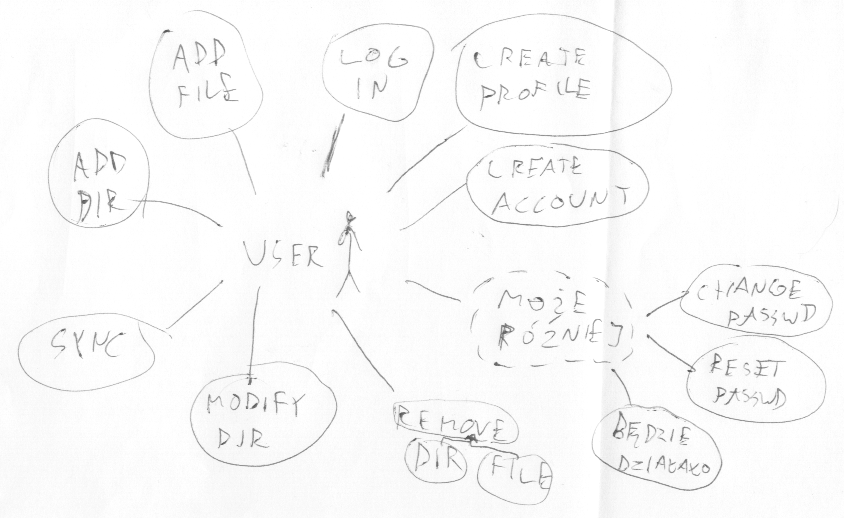 ADD
FILE
LOG
IN
CREATE
PROFILE
ADD
DIR
CREATE
ACCOUNT
USER
MOŻE
RÓŻNIEJ
CHANGE
PASSWD
SYNC
MODIFY
DIR
REMOVE
DIR
FILE
RESET
PASSWD
BĘDZIE
DZIAŁAŁO